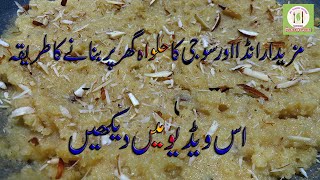 مزیدار انڈا اور سوجی کا حلواہ گھر پر بنانے کا طریقہ
اس ویڈیو میں دیکھیں